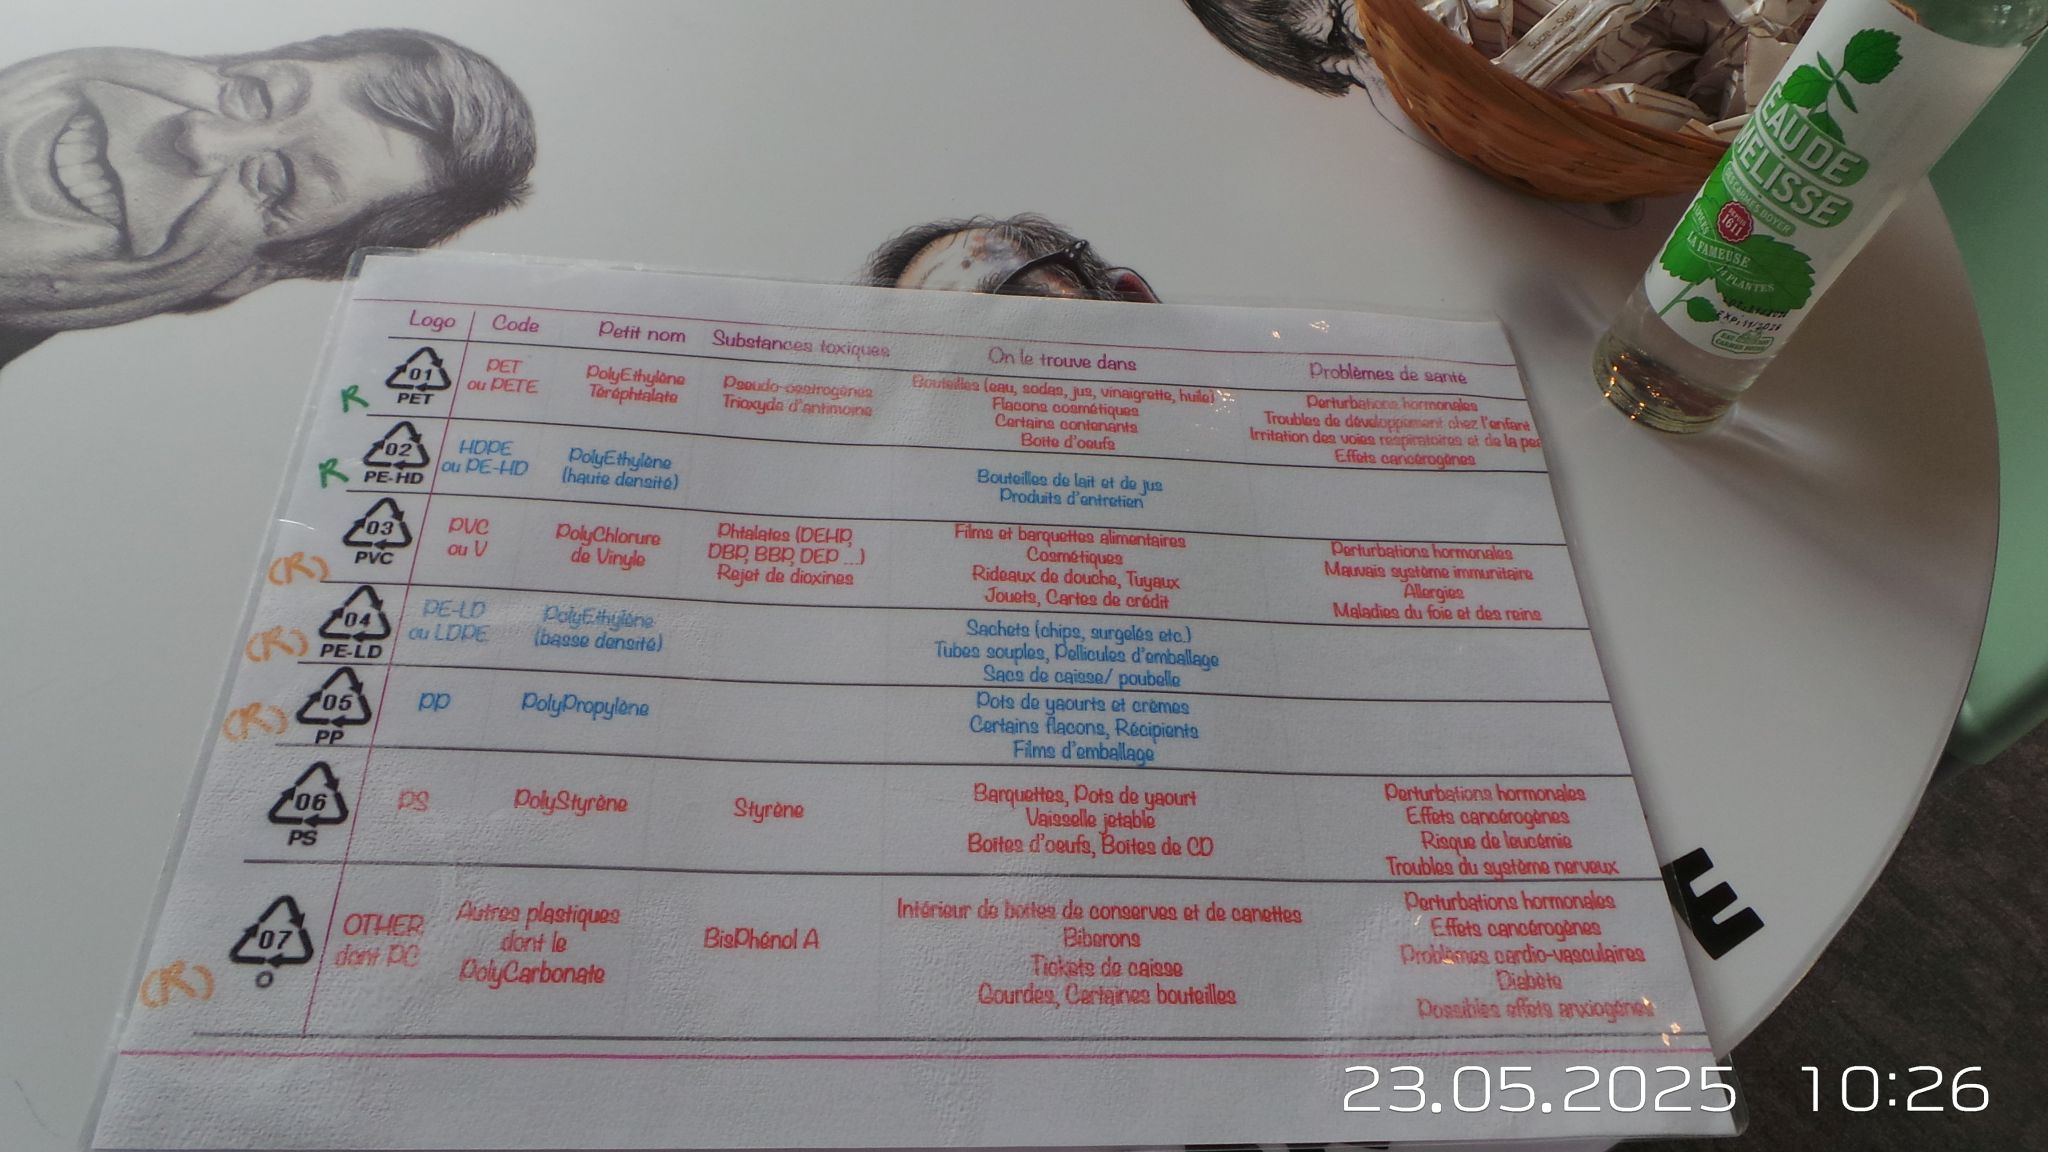 Sucre - Sugar
EAU DE
MÉLISSE
DES CARMES BOYER
DEPUIS
1611
LA FAMEUSE
14 PLANTES
EXP: 11/2026
Logo Code Petit nom Substances toxiques On le trouve dans Problèmes de santé
01
PET
R
PET
ou PETE
PolyEthylène
Téréphtalate
Pseudo-oestrogènes
Trioxyde d'antimoine
Bouteilles (eau, sodas, jus, vinaigrette, huile)
Flacons cosmétiques
Certains contenants
Boite d'oeufs
Perturbations hormonales
Troubles de développement chez l'enfant
Irritation des voies respiratoires et de la pea
Effets cancérogènes
02
PE-HD
R
HDPE
ou PE-HD
PolyEthylène
(haute densité)
Bouteilles de lait et de jus
Produits d'entretien
03
PVC
(R)
PVC
ou V
PolyChlorure
de Vinyle
Phtalates (DEHP,
DBP, BBP, DEP ...)
Rejet de dioxines
Films et barquettes alimentaires
Cosmétiques
Rideaux de douche, Tuyaux
Jouets, Cartes de crédit
Perturbations hormonales
Mauvais système immunitaire
Allergies
Maladies du foie et des reins
04
PE-LD
(R)
PE-LD
ou LDPE
PolyEthylène
(basse densité)
Sachets (chips, surgelés etc.)
Tubes souples, Pellicules d'emballage
Sacs de caisse/ poubelle
05
PP
(R)
PP
PolyPropylène
Pots de yaourts et crèmes
Certains flacons, Récipients
Films d'emballage
06
PS
PS
PolyStyrène
Styrène
Barquettes, Pots de yaourt
Vaisselle jetable
Boites d'oeufs, Boites de CD
Perturbations hormonales
Effets cancérogènes
Risque de leucémie
Troubles du système nerveux
07
O
(R)
OTHER
dont PC
Autres plastiques
dont le
PolyCarbonate
BisPhénol A
Intérieur de boites de conserves et de canettes
Biberons
Tickets de caisse
Gourdes, Certaines bouteilles
Perturbations hormonales
Effets cancérogènes
Problèmes cardio-vasculaires
Diabète
Possibles effets anxiogènes
E
23.05.2025 10:26